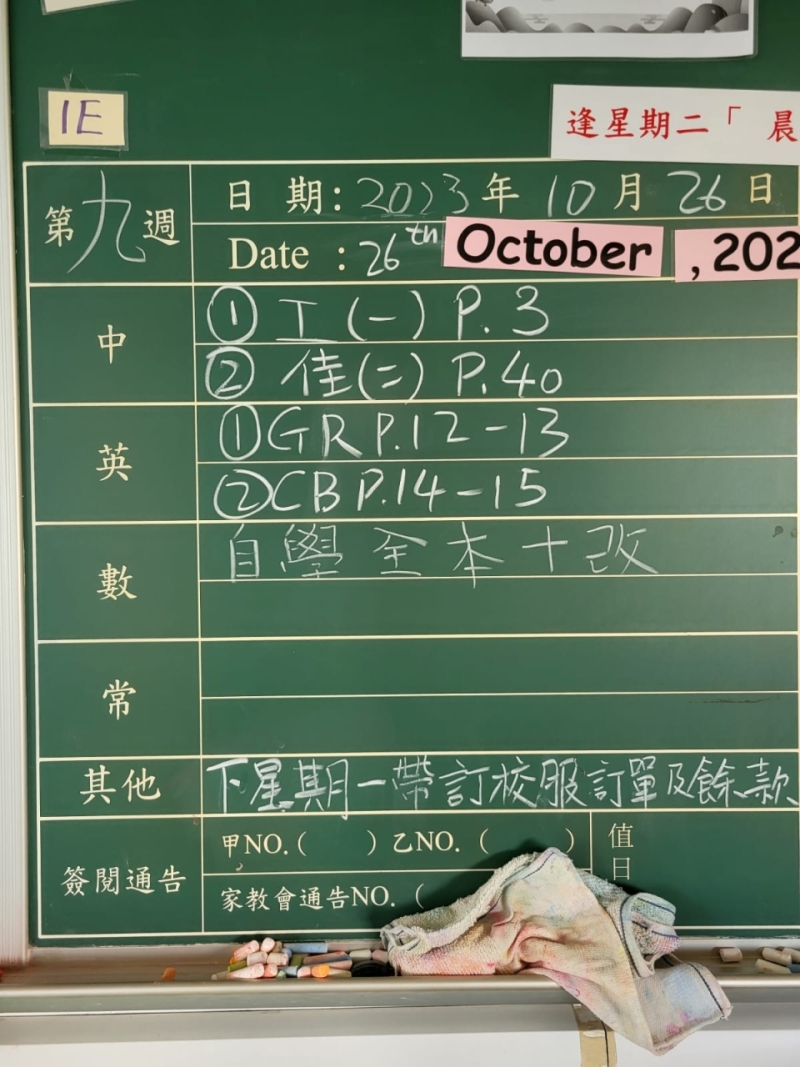 1E
逢星期二「 晨
第九週
日 期: 2023 年 10 月 26 日
Date : 26th October , 202
中
① 工 (一) P. 3
② 佳(二) P. 40
英
① GR P.12-13
② CB P.14-15
數
自學全本+改
常
其他
下星期一帶訂校服訂單及餘款
簽閱通告
甲NO.( ) 乙NO. ( )
值日
家教會通告NO. (